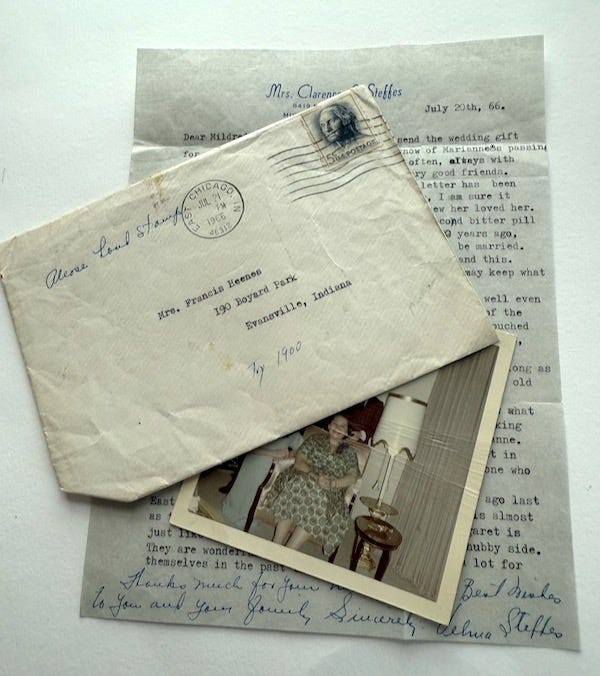 Mrs. Clarence Steffes
8419
July 20th, 66.
Dear Mildred
send the wedding gift
for
know of Marianness passin,
often, always with
ry good friends.
letter has been
, I am sure it
ew her loved her.
cond bitter pill
years ago,
be married.
and this.
may keep what
well even
of the
ouched
ong as
old
what
king
anne.
t in
one who
ago last
East
as
is almost
just li
garet is
They are wonderf
hubby side.
themselves in the past
lot for
Thanks much for your
Best Wishes
to You and Your family Sincerely Selma Steffes
5¢ U.S. POSTAGE
EAST CHICAGO, IN
JUL 21
PM
1966
46312
Please
Stamp
Mrs. Francis Heenes
190 Boyard Park
Evansville, Indiana
Try 1900